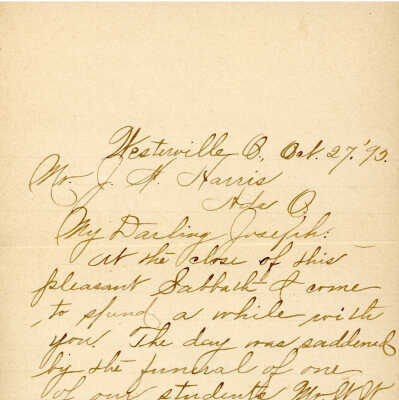 Westerville O., Oct. 27.'95.
Mr. J. H. Harris
Ada O.
My Darling Joseph:
At the close of this
pleasant Sabbath I come
to spend a while with
you The day was saddened
by the funeral of one
of our students Mr. W. W.